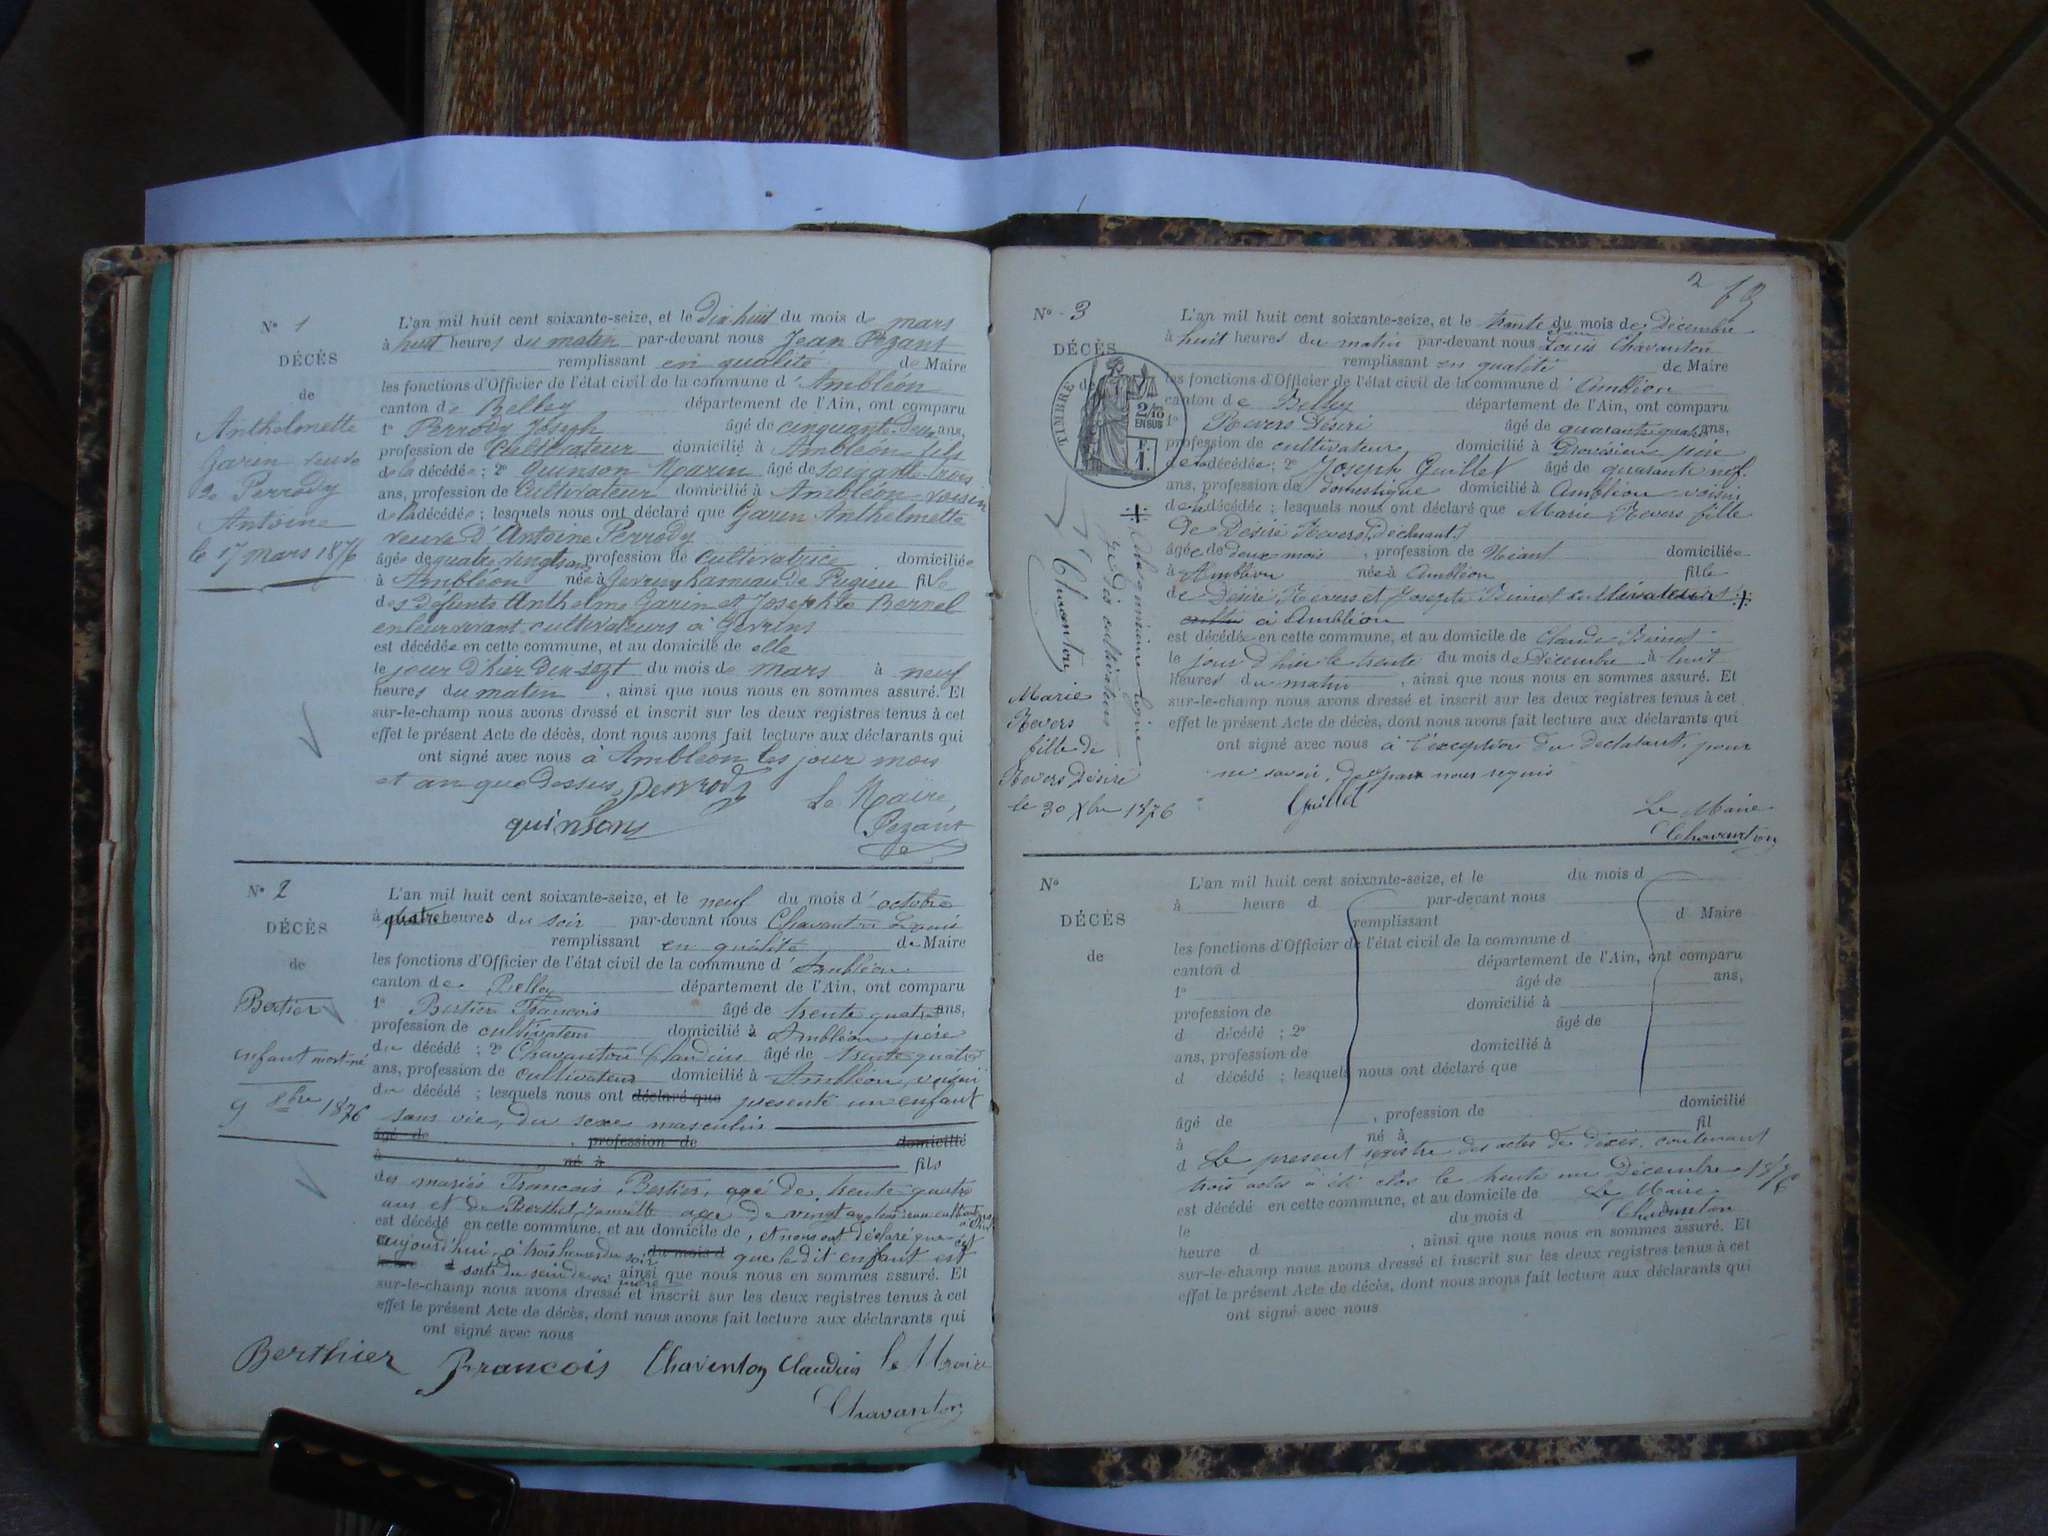 N° 1
DÉCÈS
de
Anthelmette
Garin veuve
de Perrody
Antoine
le 17 mars 1876
L'an mil huit cent soixante-seize, et le dix huit du mois de mars
à huit heures du matin par-devant nous Jean Pezant
remplissant en qualité de Maire
les fonctions d'Officier de l'état civil de la commune d'Ambléon
canton de Belley département de l'Ain, ont comparu
1° Perrody Joseph âgé de cinquante deux ans,
profession de Cultivateur domicilié à Ambléon fils
de la décédée ; 2° Quinson Marin âgé de soixante trois
ans, profession de Cultivateur domicilié à Ambléon voisin
de la décédée ; lesquels nous ont déclaré que Garin Anthelmette
veuve d'Antoine Perrody
âgée de quatre vingt ans profession de Cultivatrice domiciliée
à Ambléon née à Gevrin hameau de fille
des défunts Anthelme Garin et Josephte Bernel
en leur vivant cultivateurs à Gevrins
est décédée en cette commune, et au domicile de elle
le jour d'hier dix sept du mois de mars à neuf
heures du matin , ainsi que nous nous en sommes assuré. Et
sur-le-champ nous avons dressé et inscrit sur les deux registres tenus à cet
effet le présent Acte de décès, dont nous avons fait lecture aux déclarants qui
ont signé avec nous à Ambléon les jour mois
et an que dessus, Perrody Le Maire,
quinson Pezant
N° 2
DÉCÈS
de
Bertier
enfant mort-né
9 8bre 1876
L'an mil huit cent soixante-seize, et le neuf du mois d'octobre
à quatre heures du soir par-devant nous Chavanton Louis
remplissant en qualité de Maire
les fonctions d'Officier de l'état civil de la commune d'Ambléon
canton de Belley département de l'Ain, ont comparu
1° Bertier François âgé de trente quatre ans,
profession de cultivateur domicilié à Ambléon père
du décédé ; 2° Chavanton Claudius âgé de trente quatre
ans, profession de cultivateur domicilié à Ambléon, voisin
du décédé ; lesquels nous ont déclaré que présenté un enfant
sans vie, du sexe masculin
âgé de , profession de domicilié
à né à fils
des mariés François Bertier, agé de trente quatre
ans et de Berthet agée de vingt
est décédé en cette commune, et au domicile de , et nous ont déclaré que cet
aujourd'hui, à trois heures du soir du mois d que le dit enfant est
sorti du sein de sa mère ainsi que nous nous en sommes assuré. Et
sur-le-champ nous avons dressé et inscrit sur les deux registres tenus à cet
effet le présent Acte de décès, dont nous avons fait lecture aux déclarants qui
ont signé avec nous
Berthier François Chaventon Claudius le Maire
Chavanton
2
N° 3
DÉCÈS
de
TIMBRE
2/10 EN SUS
F. 1.
Chavanton
Marie
Revers
fille de
Revers Désiré
le 30 Xbre 1876
L'an mil huit cent soixante-seize, et le trente du mois de Décembre
à huit heures du matin par-devant nous Louis Chavanton
remplissant en qualité de Maire
les fonctions d'Officier de l'état civil de la commune d'Ambléon
canton de Belley département de l'Ain, ont comparu
1° Revers Désiré âgé de quarante quatre ans,
profession de cultivateur domicilié à père
de la décédée ; 2° Joseph Guillet âgé de quarante neuf
ans, profession de domestique domicilié à Ambléon voisin
de la décédée ; lesquels nous ont déclaré que Marie Revers fille
de Désiré Revers, déclarant
âgée de deux mois , profession de Néant domiciliée
à Ambléon née à Ambléon fille
de Désiré Revers et Josepte
à Ambléon
est décédée en cette commune, et au domicile de Claude
le jour d'hier le trente du mois de Décembre à huit
heures du matin , ainsi que nous nous en sommes assuré. Et
sur-le-champ nous avons dressé et inscrit sur les deux registres tenus à cet
effet le présent Acte de décès, dont nous avons fait lecture aux déclarants qui
ont signé avec nous à l'exception du declarant, pour
ne savoir, de par nous requis
Guillet Le Maire
Chavanton
N°
DÉCÈS
de
L'an mil huit cent soixante-seize, et le du mois d
à heure d par-devant nous
remplissant d Maire
les fonctions d'Officier de l'état civil de la commune d
canton d département de l'Ain, ont comparu
1° âgé de ans,
profession de domicilié à
d décédé ; 2° âgé de
ans, profession de domicilié à
d décédé ; lesquels nous ont déclaré que
âgé de , profession de domicilié
à né à fil
d Le present registre des actes de décès, contenant
trois actes a été clos le trente un Décembre 1876
est décédé en cette commune, et au domicile de Le Maire
le du mois d Chavanton
heure d , ainsi que nous nous en sommes assuré. Et
sur-le-champ nous avons dressé et inscrit sur les deux registres tenus à cet
effet le présent Acte de décès, dont nous avons fait lecture aux déclarants qui
ont signé avec nous